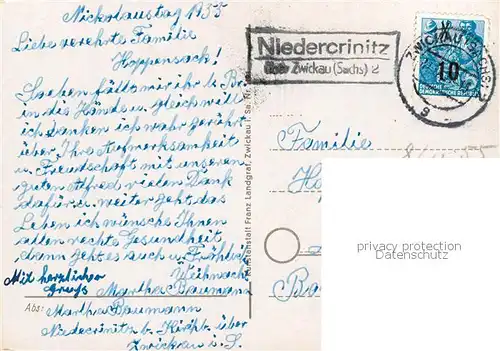 Nickolaustag 1955
Liebe verehrte Familie
Hoppensack!
Soeben fällt mir ihr b. Br.
in die Hände u. gleich will
ich danken ich war gerührt
über Ihre Aufmerksamkeit
u. Freundschaft mit unseren
guten Alfred vielen Dank
dafür u. weiter geht das
Leben ich wünsche Ihnen
allen rechte Gesundheit
dann geht es auch u. Fröhliche
Weihnacht
Mit herzlichen
Gruß Martha Baumann
Abs: Martha Baumann
Niedecrinitz b. Kirchb. über
Zwickau i. S.
Niedercrinitz
über Zwickau (Sachs) 2
ZWICKAU (SACHS) 2
10
DEUTSCHE
DEMOKRATISCHE REPUBLIK
Kunstanstalt Franz Landgraf, Zwickau i. Sa. Nr.
Familie
privacy protection
Datenschutz